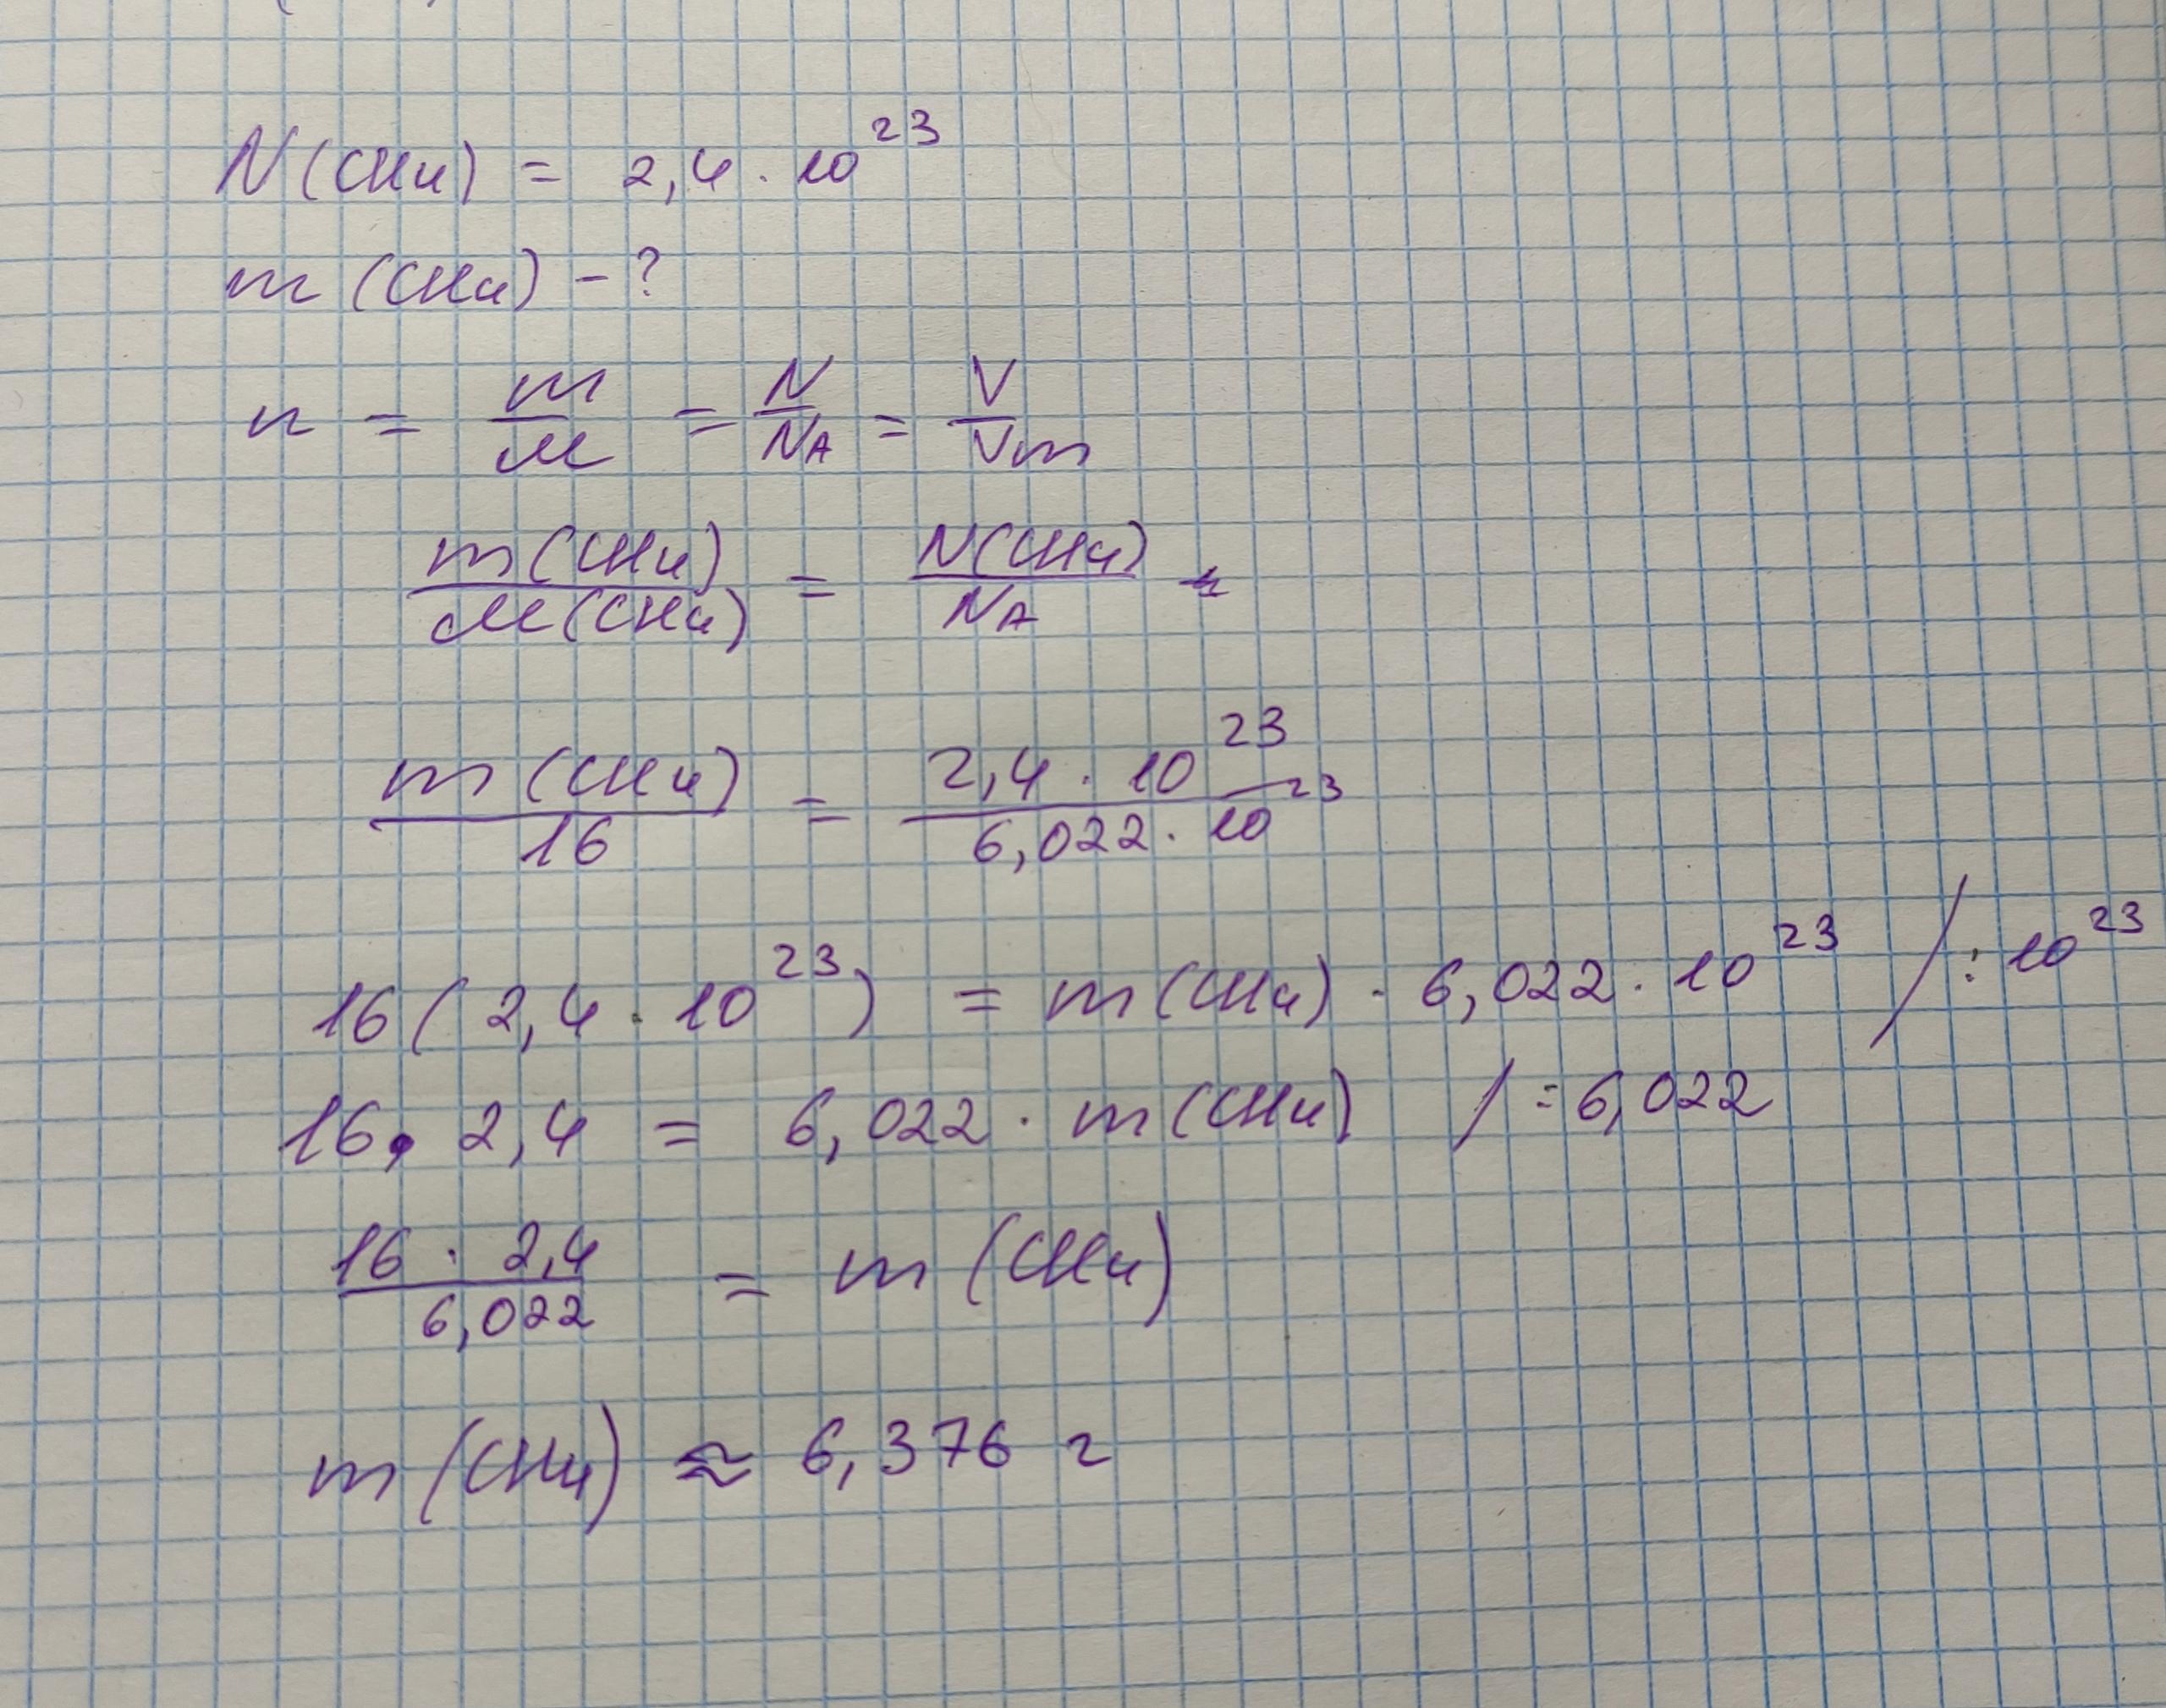 N(CH₄) = 2,4 · 10²³
m (CH₄) - ?
n = m/M = N/Nᴀ = V/Vm
m(CH₄)/M(CH₄) = N(CH₄)/Nᴀ
m(CH₄)/16 = 2,4 · 10²³/6,022 · 10²³
16(2,4 · 10²³) = m(CH₄) · 6,022 · 10²³ /: 10²³
16 · 2,4 = 6,022 · m(CH₄) /: 6,022
16 · 2,4/6,022 = m(CH₄)
m(CH₄) ≈ 6,376 г